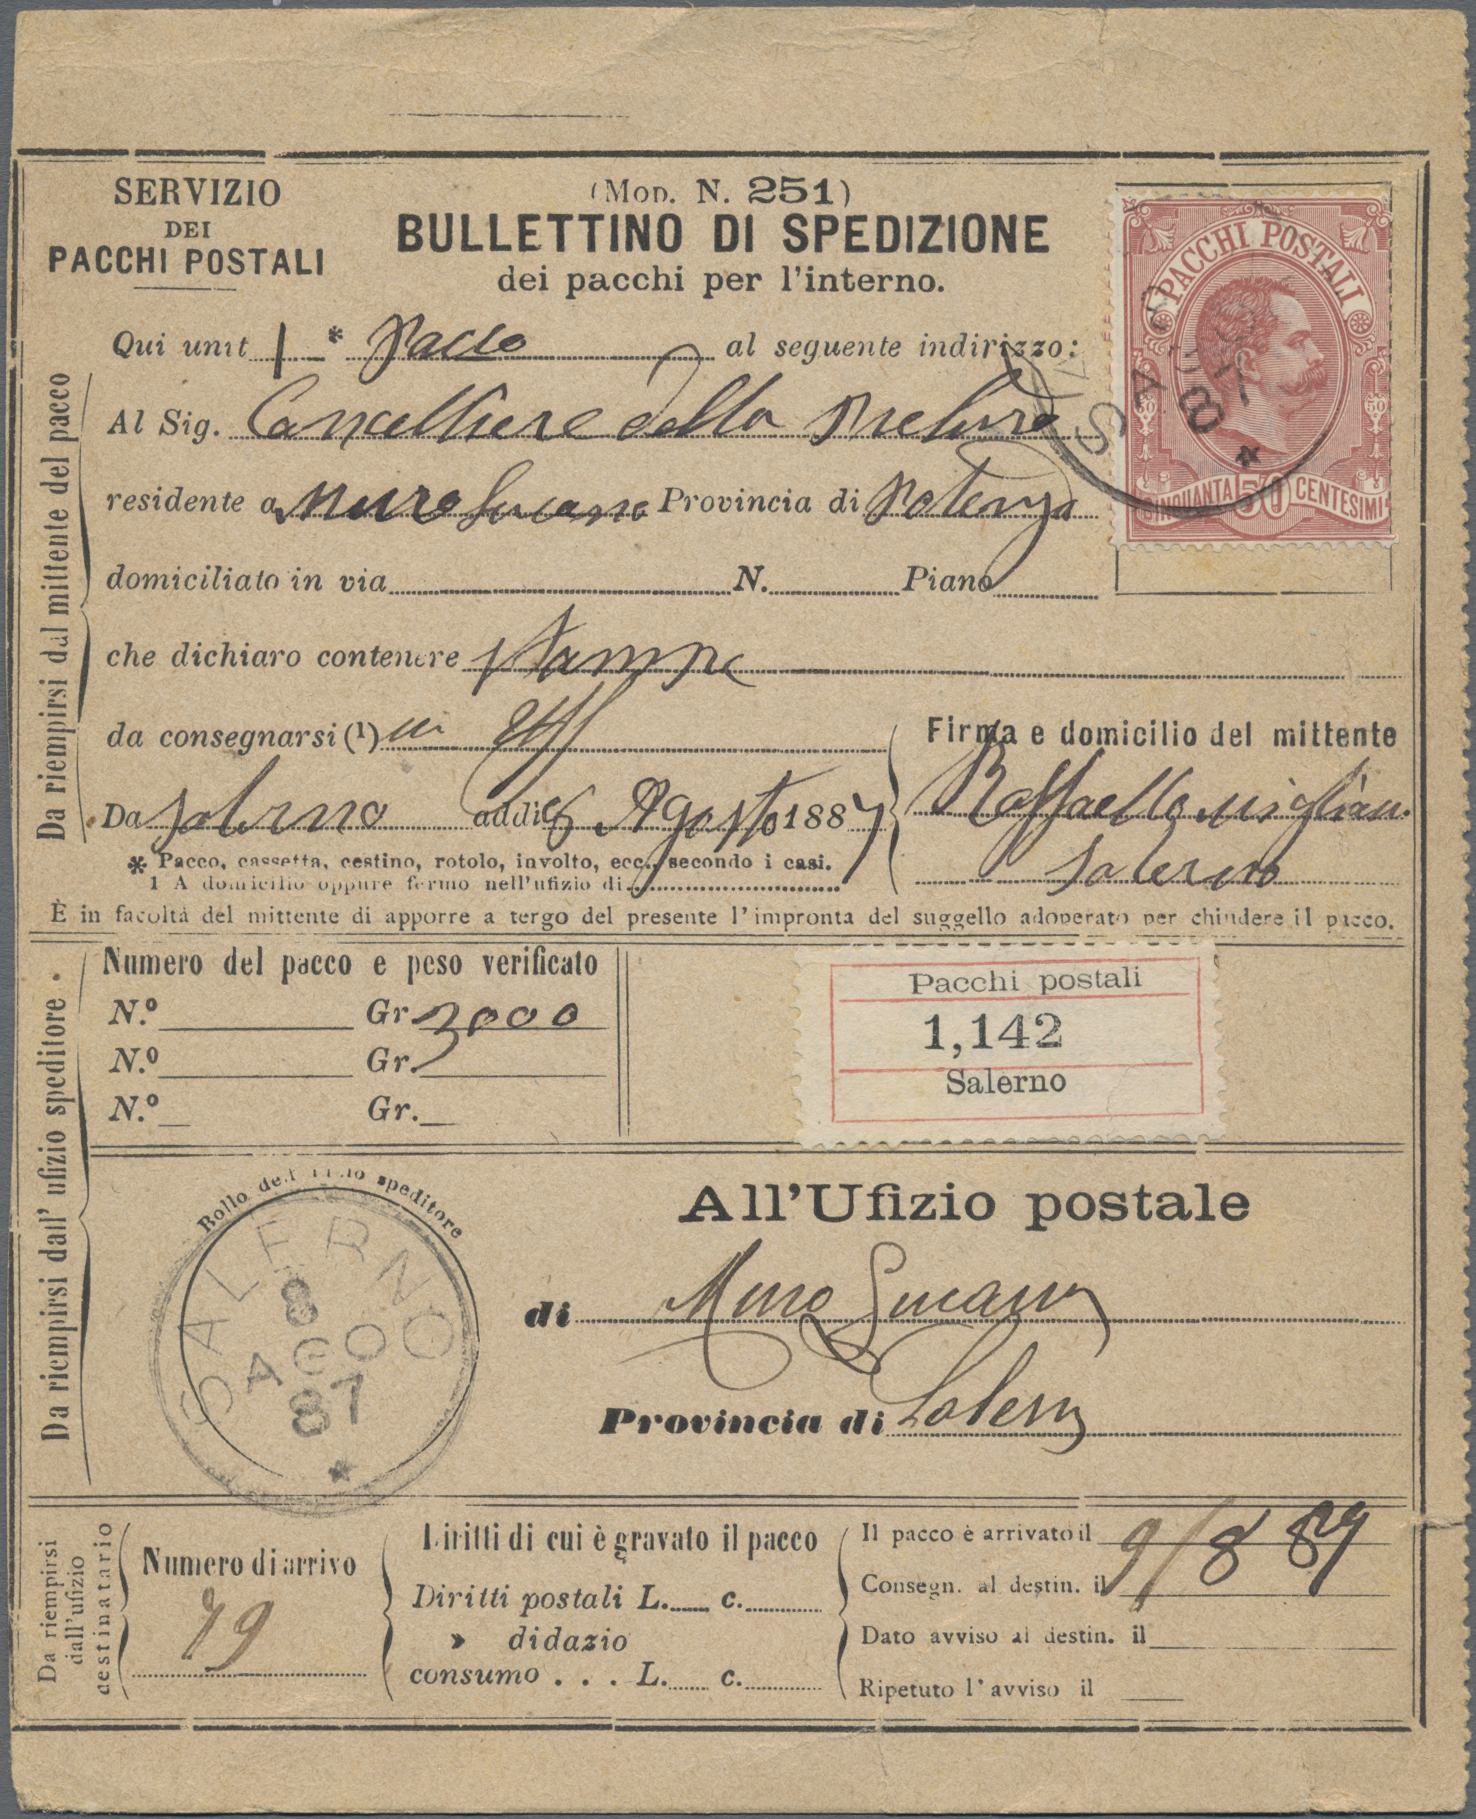 SERVIZIO
DEI
PACCHI POSTALI
(Mod. N. 251)
BULLETTINO DI SPEDIZIONE
dei pacchi per l'interno.
PACCHI POSTALI
50 50
CINQUANTA 50 CENTESIMI
Da riempirsi dal mittente del pacco
Qui unit 1 * pacco al seguente indirizzo:
Al Sig. Cancelliere della Pretura
residente a Muro Lucano Provincia di Potenza
domiciliato in via N. Piano
che dichiaro contenere stampe
da consegnarsi (1) in
Firma e domicilio del mittente
Da Salerno addì 6 Agosto 1887
Raffaello
Salerno
* Pacco, cassetta, cestino, rotolo, involto, ecc., secondo i casi.
1 A domicilio oppure fermo nell'ufizio di
È in facoltà del mittente di apporre a tergo del presente l'impronta del suggello adoperato per chiudere il pacco.
Da riempirsi dall' ufizio speditore.
Numero del pacco e peso verificato
N.º Gr. 3000
N.º Gr.
N.º Gr.
Pacchi postali
1,142
Salerno
Bollo dell' ufizio speditore
SALERNO
8
AGO
87
All'Ufizio postale
di Muro Lucano
Provincia di
Da riempirsi
dall'ufizio
destinatario
Numero di arrivo
79
Diritti di cui è gravato il pacco
Diritti postali L. c.
» di dazio
consumo . . . L. c.
Il pacco è arrivato il 9/8 87
Consegn. al destin. il
Dato avviso al destin. il
Ripetuto l'avviso il